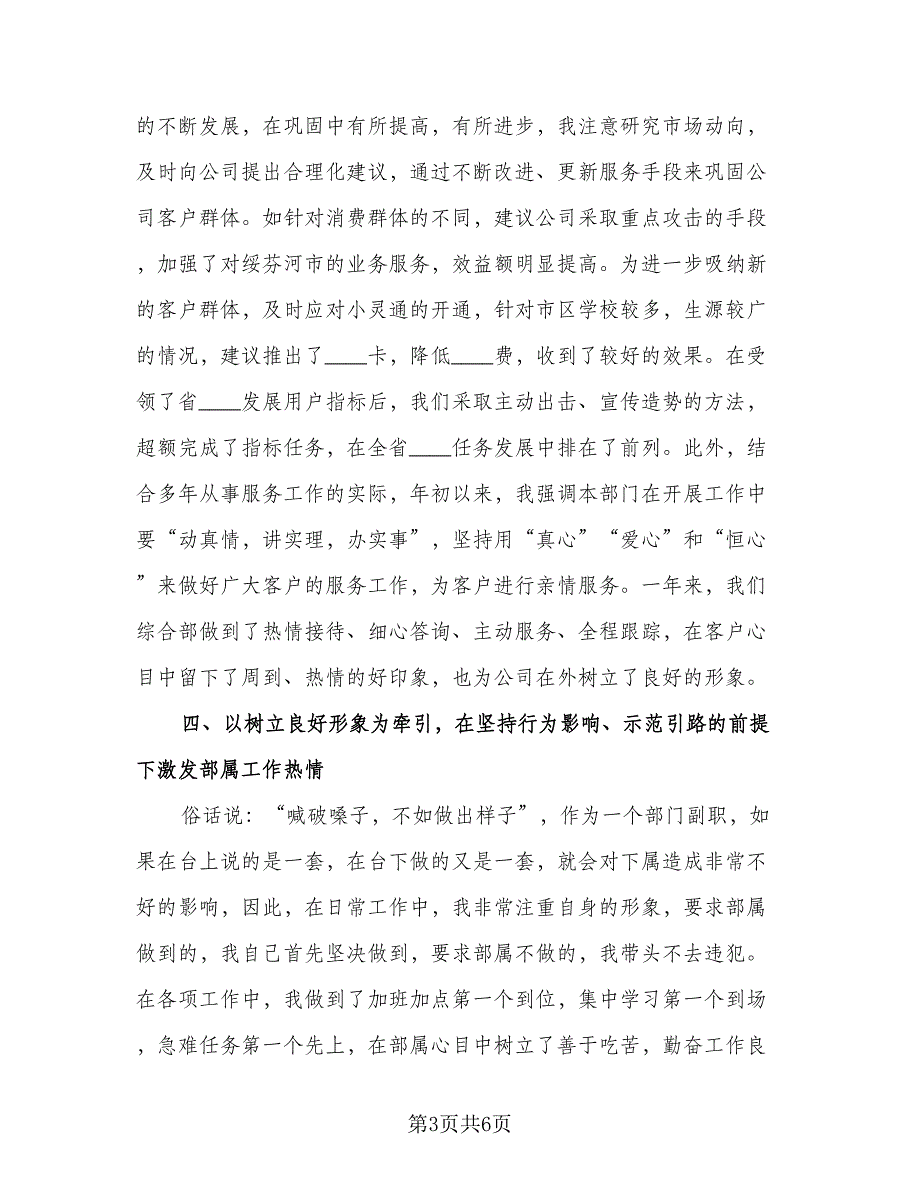 的不断发展，在巩固中有所提高，有所进步，我注意研究市场动向，
及时向公司提出合理化建议，通过不断改进、更新服务手段来巩固公
司客户群体。如针对消费群体的不同，建议公司采取重点攻击的手段
，加强了对绥芬河市的业务服务，效益额明显提高。为进一步吸纳新
的客户群体，及时应对小灵通的开通，针对市区学校较多，生源较广
的情况，建议推出了____卡，降低____费，收到了较好的效果。在受
领了省____发展用户指标后，我们采取主动出击、宣传造势的方法，
超额完成了指标任务，在全省____任务发展中排在了前列。此外，结
合多年从事服务工作的实际，年初以来，我强调本部门在开展工作中
要“动真情，讲实理，办实事”，坚持用“真心”“爱心”和“恒心
”来做好广大客户的服务工作，为客户进行亲情服务。一年来，我们
综合部做到了热情接待、细心答询、主动服务、全程跟踪，在客户心
目中留下了周到、热情的好印象，也为公司在外树立了良好的形象。
四、以树立良好形象为牵引，在坚持行为影响、示范引路的前提
下激发部属工作热情
俗话说：“喊破嗓子，不如做出样子”，作为一个部门副职，如
果在台上说的是一套，在台下做的又是一套，就会对下属造成非常不
好的影响，因此，在日常工作中，我非常注重自身的形象，要求部属
做到的，我自己首先坚决做到，要求部属不做的，我带头不去违犯。
在各项工作中，我做到了加班加点第一个到位，集中学习第一个到场
，急难任务第一个先上，在部属心目中树立了善于吃苦，勤奋工作良
第3页共6页